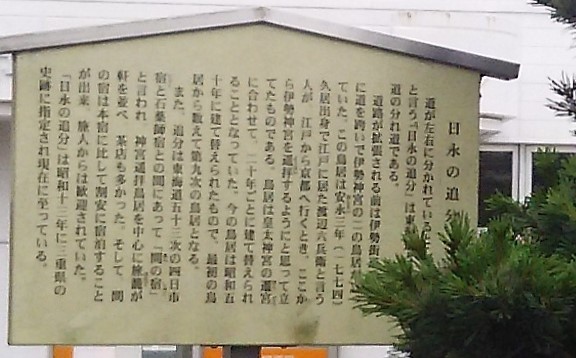 日永の追分
道が左右に分かれているとこ
と言う「日永の追分」は東海
道の分れ道である。
道路が拡張される前は伊勢街
に道を跨いで伊勢神宮の二の鳥居が
ていた。この鳥居は安永三年（一七七四）
久居出身で江戸に居た渡辺六兵衛と言う
人が、江戸から京都へ行くとき、ここか
ら伊勢神宮を遥拝するようにと思って立
てたものである。鳥居は皇太神宮の遷宮
に合わせて、二十年ごとに建て替えられ
ることとなっていた。今の鳥居は昭和五
十年に建て替えられたもので、最初の鳥
居から数えて第九次の鳥居となる。
また、追分は東海道五十三次の四日市
宿と石薬師宿との間にあって「間の宿」
と言われ、神宮遥拝鳥居を中心に旅籠が
軒を並べ、茶店も多かった。そして、間
の宿は本宿に比して割安に宿泊すること
が出来、旅人からは歓迎されていた。
「日永の追分」は昭和十三年に三重県の
史跡に指定され現在に至っている。